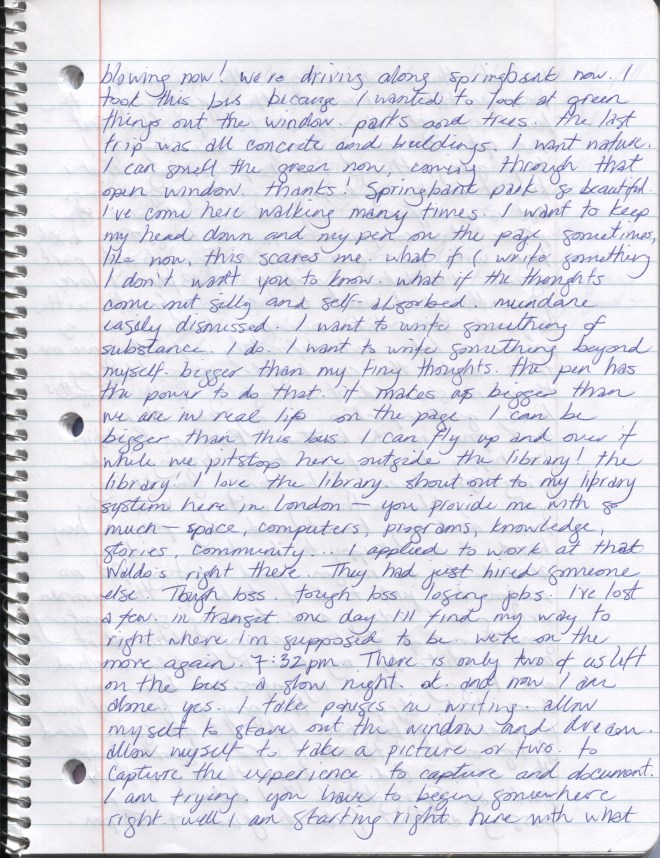 blowing now! we're driving along springbank now. I
took this bus because I wanted to look at green
things out the window. parks and trees. the last
trip was all concrete and buildings. I want nature.
I can smell the green now, coming through that
open window. thanks! Springbank park so beautiful.
I've come here walking many times. I want to keep
my head down and my pen on the page sometimes,
like now, this scares me. what if I write something
I don't want you to know. what if the thoughts
come out silly and self-absorbed. mundane
easily dismissed. I want to write something of
substance. I do. I want to write something beyond
myself. bigger than my tiny thoughts. the pen has
the power to do that. it makes us bigger than
we are in real life on the page. I can be
bigger than this bus I can fly up and over it
while we pitstop here outside the library! the
library! I love the library. shout out to my library
system here in London — you provide me with so
much — space, computers, programs, knowledge,
stories, community... I applied to work at that
Waldo's right there. They had just hired someone
else. Tough loss. tough loss. losing jobs. I've lost
a few. in transit. one day I'll find my way to
right where I'm supposed to be. we're on the
move again. 7:32pm. There is only two of us left
on the bus. a slow night. ok. and now I am
alone. yes. I take pauses in writing. allow
myself to stare out the window and dream.
allow myself to take a picture or two. to
capture the experience. to capture and document.
I am trying. you have to begin somewhere
right. well I am starting right here with what